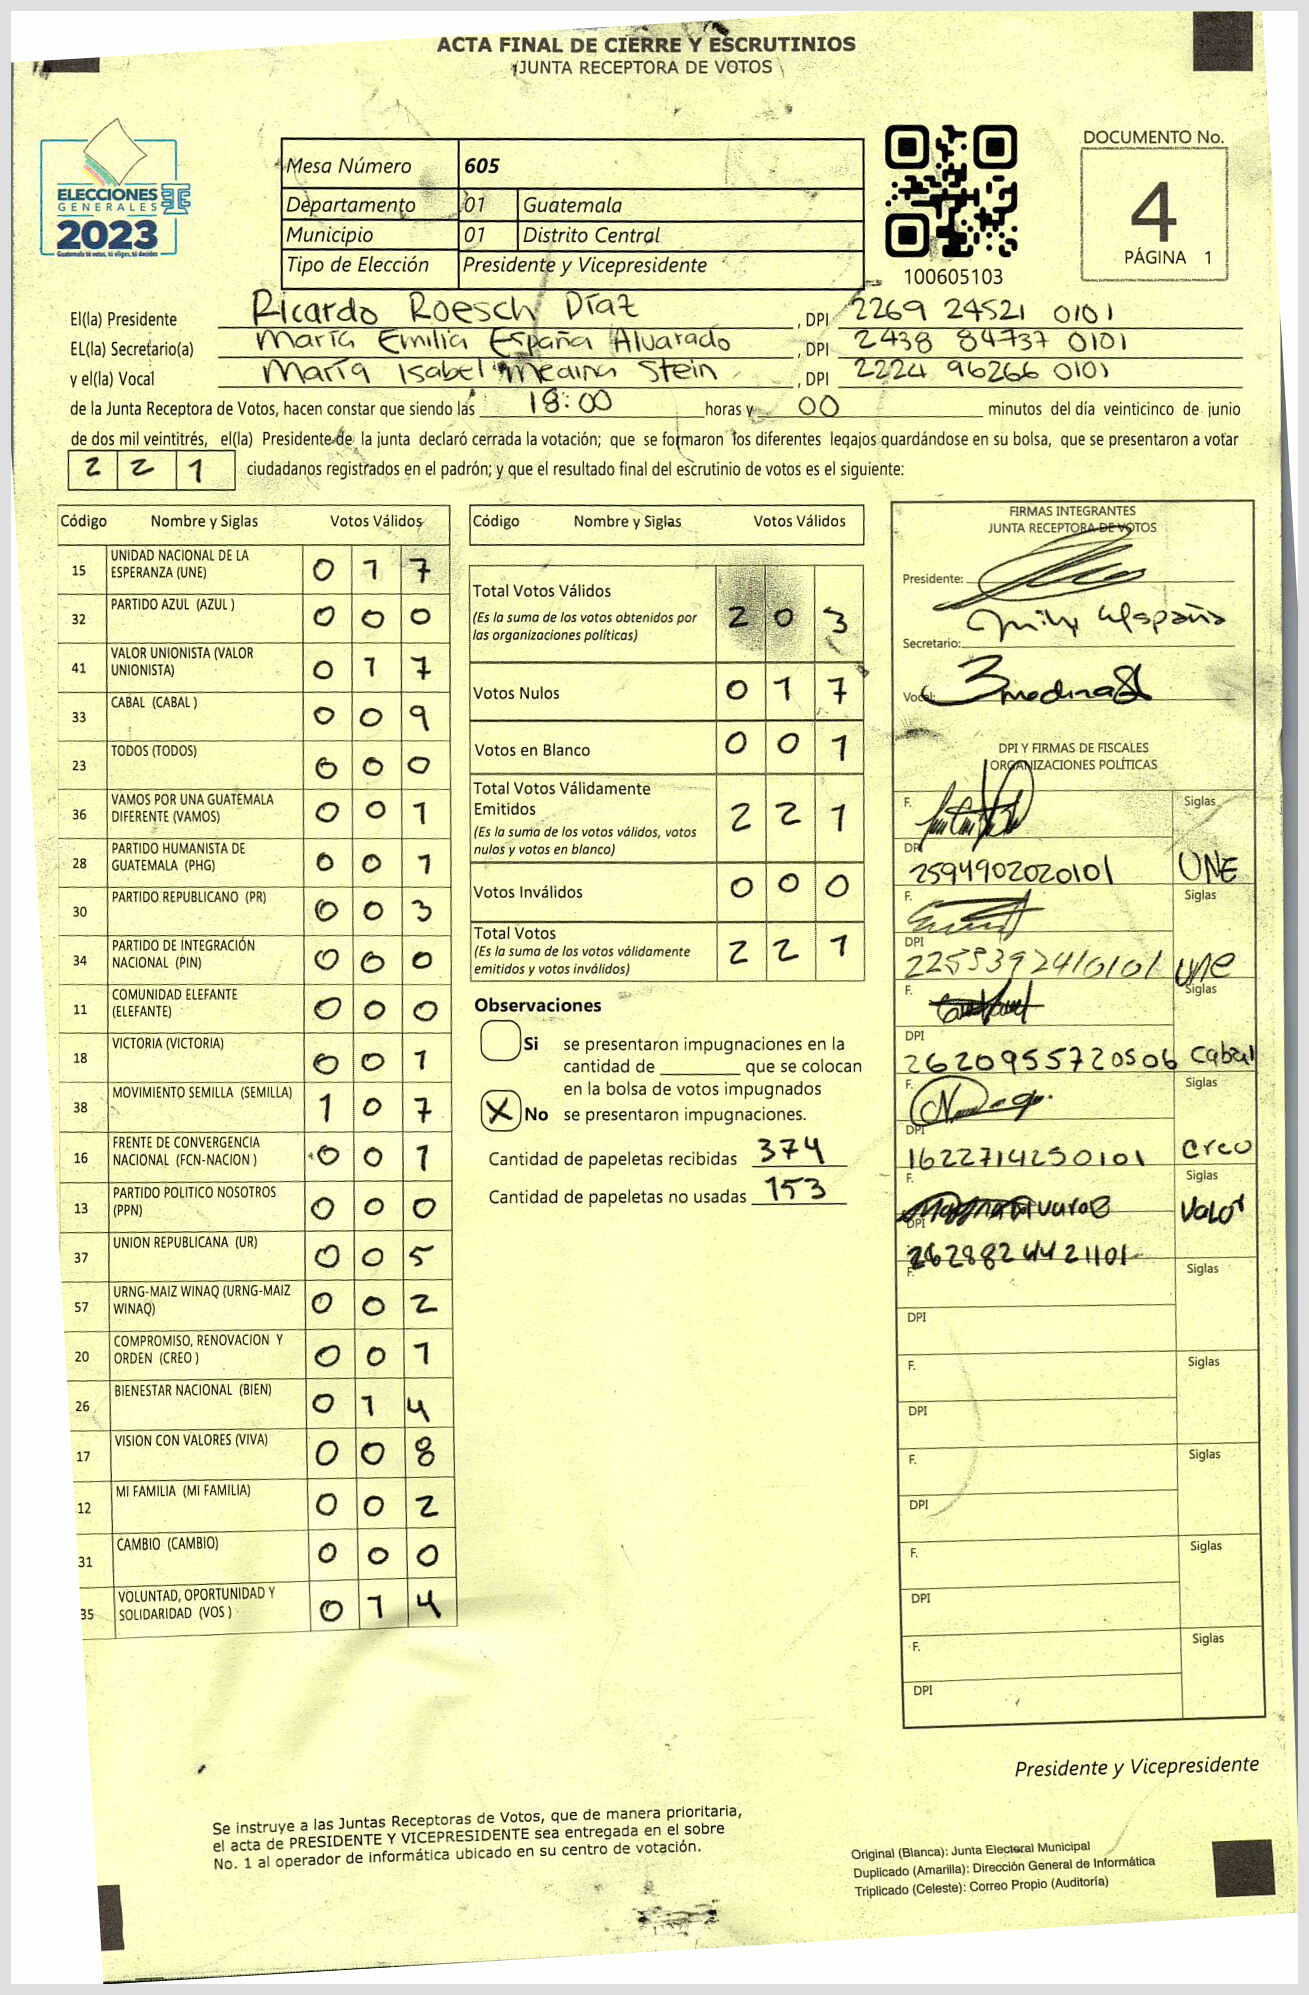 ACTA FINAL DE CIERRE Y ESCRUTINIOS
JUNTA RECEPTORA DE VOTOS
ELECCIONES
GENERALES
2023
Guatemala tú votas, tú eliges, tú decides
Mesa Número 605
Departamento 01 Guatemala
Municipio 01 Distrito Central
Tipo de Elección Presidente y Vicepresidente
100605103
DOCUMENTO No.
4
PÁGINA 1
El(la) Presidente Ricardo Roesch Díaz , DPI 2269 24521 0101
EL(la) Secretario(a) María Emilia España Alvarado , DPI 2438 84737 0101
y el(la) Vocal María Isabel Medina Stein , DPI 2224 96266 0101
de la Junta Receptora de Votos, hacen constar que siendo las 18:00 horas y 00 minutos del día veinticinco de junio
de dos mil veintitrés, el(la) Presidente de la junta declaró cerrada la votación; que se formaron los diferentes legajos guardándose en su bolsa, que se presentaron a votar
2 2 1 ciudadanos registrados en el padrón; y que el resultado final del escrutinio de votos es el siguiente:
Código Nombre y Siglas Votos Válidos
15 UNIDAD NACIONAL DE LA ESPERANZA (UNE) 0 1 7
32 PARTIDO AZUL (AZUL ) 0 0 0
41 VALOR UNIONISTA (VALOR UNIONISTA) 0 1 7
33 CABAL (CABAL ) 0 0 9
23 TODOS (TODOS) 0 0 0
36 VAMOS POR UNA GUATEMALA DIFERENTE (VAMOS) 0 0 1
28 PARTIDO HUMANISTA DE GUATEMALA (PHG) 0 0 1
30 PARTIDO REPUBLICANO (PR) 0 0 3
34 PARTIDO DE INTEGRACIÓN NACIONAL (PIN) 0 0 0
11 COMUNIDAD ELEFANTE (ELEFANTE) 0 0 0
18 VICTORIA (VICTORIA) 0 0 1
38 MOVIMIENTO SEMILLA (SEMILLA) 1 0 7
16 FRENTE DE CONVERGENCIA NACIONAL (FCN-NACION ) 0 0 1
13 PARTIDO POLITICO NOSOTROS (PPN) 0 0 0
37 UNION REPUBLICANA (UR) 0 0 5
57 URNG-MAIZ WINAQ (URNG-MAIZ WINAQ) 0 0 2
20 COMPROMISO, RENOVACION Y ORDEN (CREO ) 0 0 1
26 BIENESTAR NACIONAL (BIEN) 0 1 4
17 VISION CON VALORES (VIVA) 0 0 8
12 MI FAMILIA (MI FAMILIA) 0 0 2
31 CAMBIO (CAMBIO) 0 0 0
35 VOLUNTAD, OPORTUNIDAD Y SOLIDARIDAD (VOS ) 0 1 4
Código Nombre y Siglas Votos Válidos
Total Votos Válidos 2 0 3
(Es la suma de los votos obtenidos por
las organizaciones políticas)
Votos Nulos 0 1 7
Votos en Blanco 0 0 1
Total Votos Válidamente
Emitidos 2 2 1
(Es la suma de los votos válidos, votos
nulos y votos en blanco)
Votos Inválidos 0 0 0
Total Votos 2 2 1
(Es la suma de los votos válidamente
emitidos y votos inválidos)
Observaciones
Si se presentaron impugnaciones en la
cantidad de ________ que se colocan
en la bolsa de votos impugnados
X No se presentaron impugnaciones.
Cantidad de papeletas recibidas 374
Cantidad de papeletas no usadas 153
FIRMAS INTEGRANTES
JUNTA RECEPTORA DE VOTOS
Presidente:
Secretario: Mily España
Vocal: Medina
DPI Y FIRMAS DE FISCALES
ORGANIZACIONES POLÍTICAS
F. Siglas
DPI 2594902020101 UNE
F. Siglas
DPI 2255392410101 UNE
F. Siglas
DPI 2620955720506 Cabal
F. Siglas
DPI 1622714250101 Creo
F. Siglas
DPI 2628824421101 Valor
F. Siglas
DPI
F. Siglas
DPI
F. Siglas
DPI
F. Siglas
DPI
F. Siglas
DPI
Presidente y Vicepresidente
Se instruye a las Juntas Receptoras de Votos, que de manera prioritaria,
el acta de PRESIDENTE Y VICEPRESIDENTE sea entregada en el sobre
No. 1 al operador de informática ubicado en su centro de votación.
Original (Blanca): Junta Electoral Municipal
Duplicado (Amarilla): Dirección General de Informática
Triplicado (Celeste): Correo Propio (Auditoría)